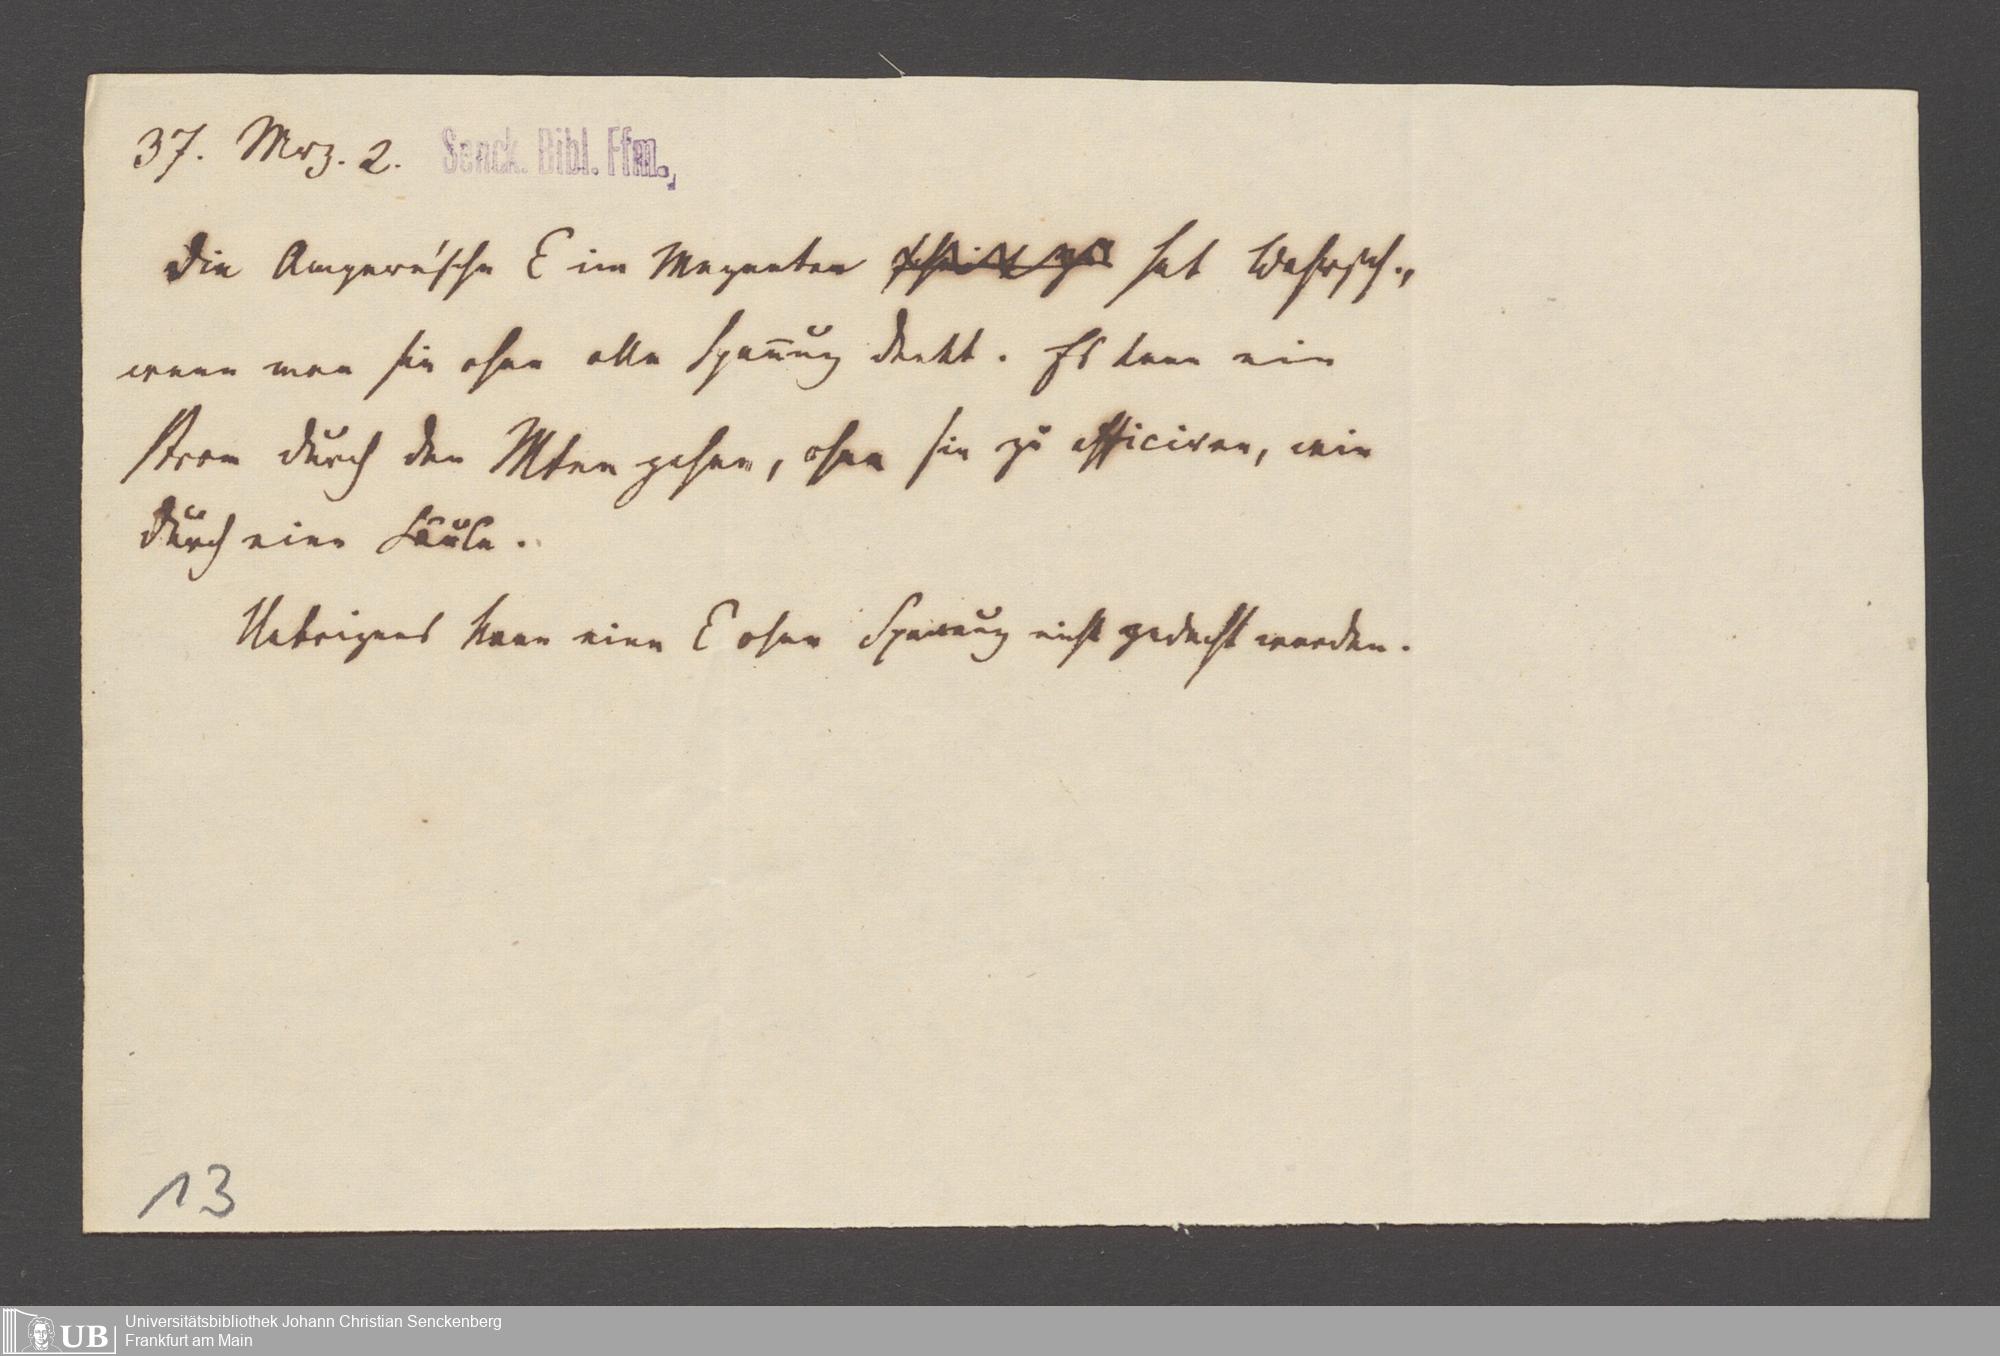 37. Mrz. 2. Senck. Bibl. Ffm.
Die Ampere'sche E im Magneten scheint zu hat Wahrsch.,
wenn man sie ohne alle Spannung denkt. Es kann ein
Strom durch den Mten gehen, ohne sie zu afficiren, wie
durch eine Säule.
Uebrigens kann eine E ohne Spannung nicht gedacht werden.
13
UB Universitätsbibliothek Johann Christian Senckenberg
Frankfurt am Main